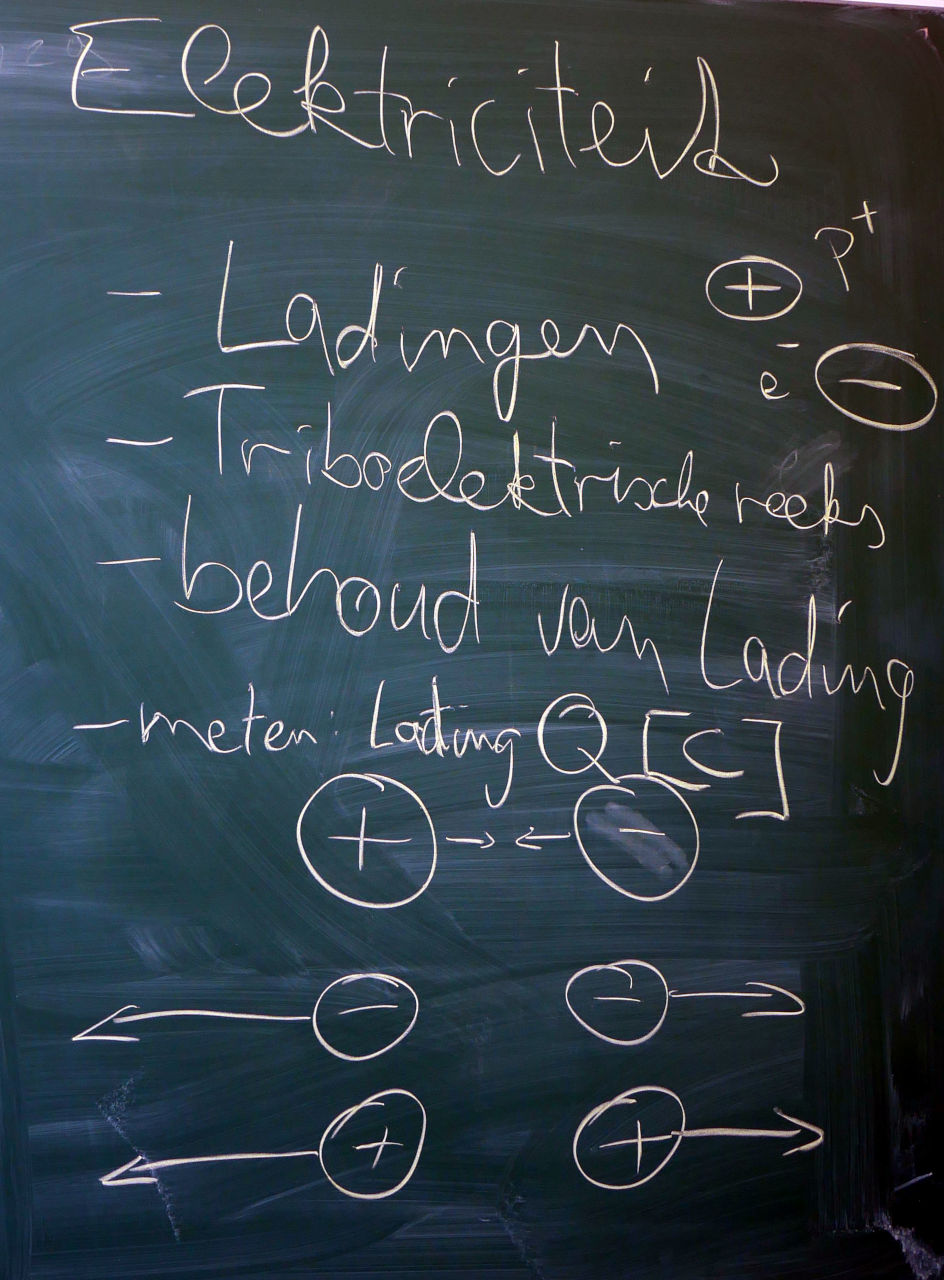 Elektriciteit
- Ladingen + p⁺
e⁻ -
- Triboelektrische reeks
- behoud van Lading
- meten: Lading Q [C]
+ → ← -
← - - →
← + + →